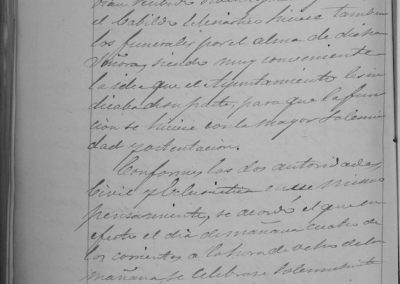 el Cabildo eclesiastico hiciese tambien
los funerales por el alma de dicha
Señora, siendo muy conveniente
la idea que el Ayuntamiento le in
dicaba de su parte, para que la fun
cion se hiciese con la mayor Solemni
dad y ostentacion.
Conformes las dos autoridades
Civil y Eclesiastica en ese mismo
pensamiento, se acordó el que en
efecto el dia de mañana cuatro de
los corrientes a la hora de ocho de la
mañana se celebrase solemnemente